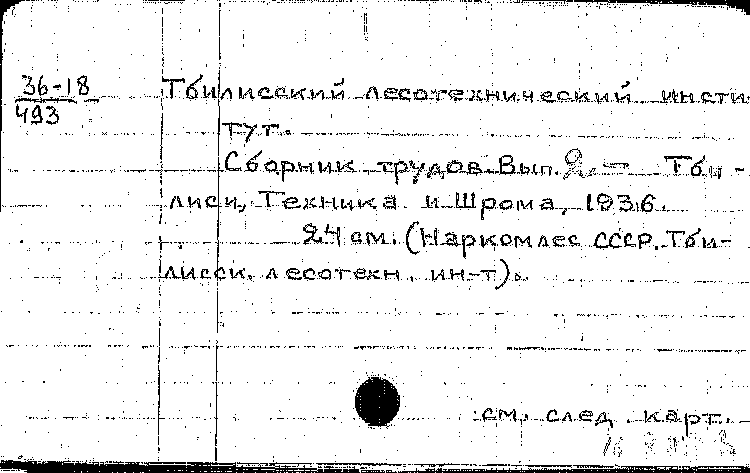 36-18
493
Тбилисский лесотехнический инсти
тут.
Сборник трудов. Вып. 2. — Тби-
лиси, Техника и Шрома, 1936.
24 см. (Наркомлес СССР. Тби-
лисск. лесотехн. ин-т).
см. след. карт.